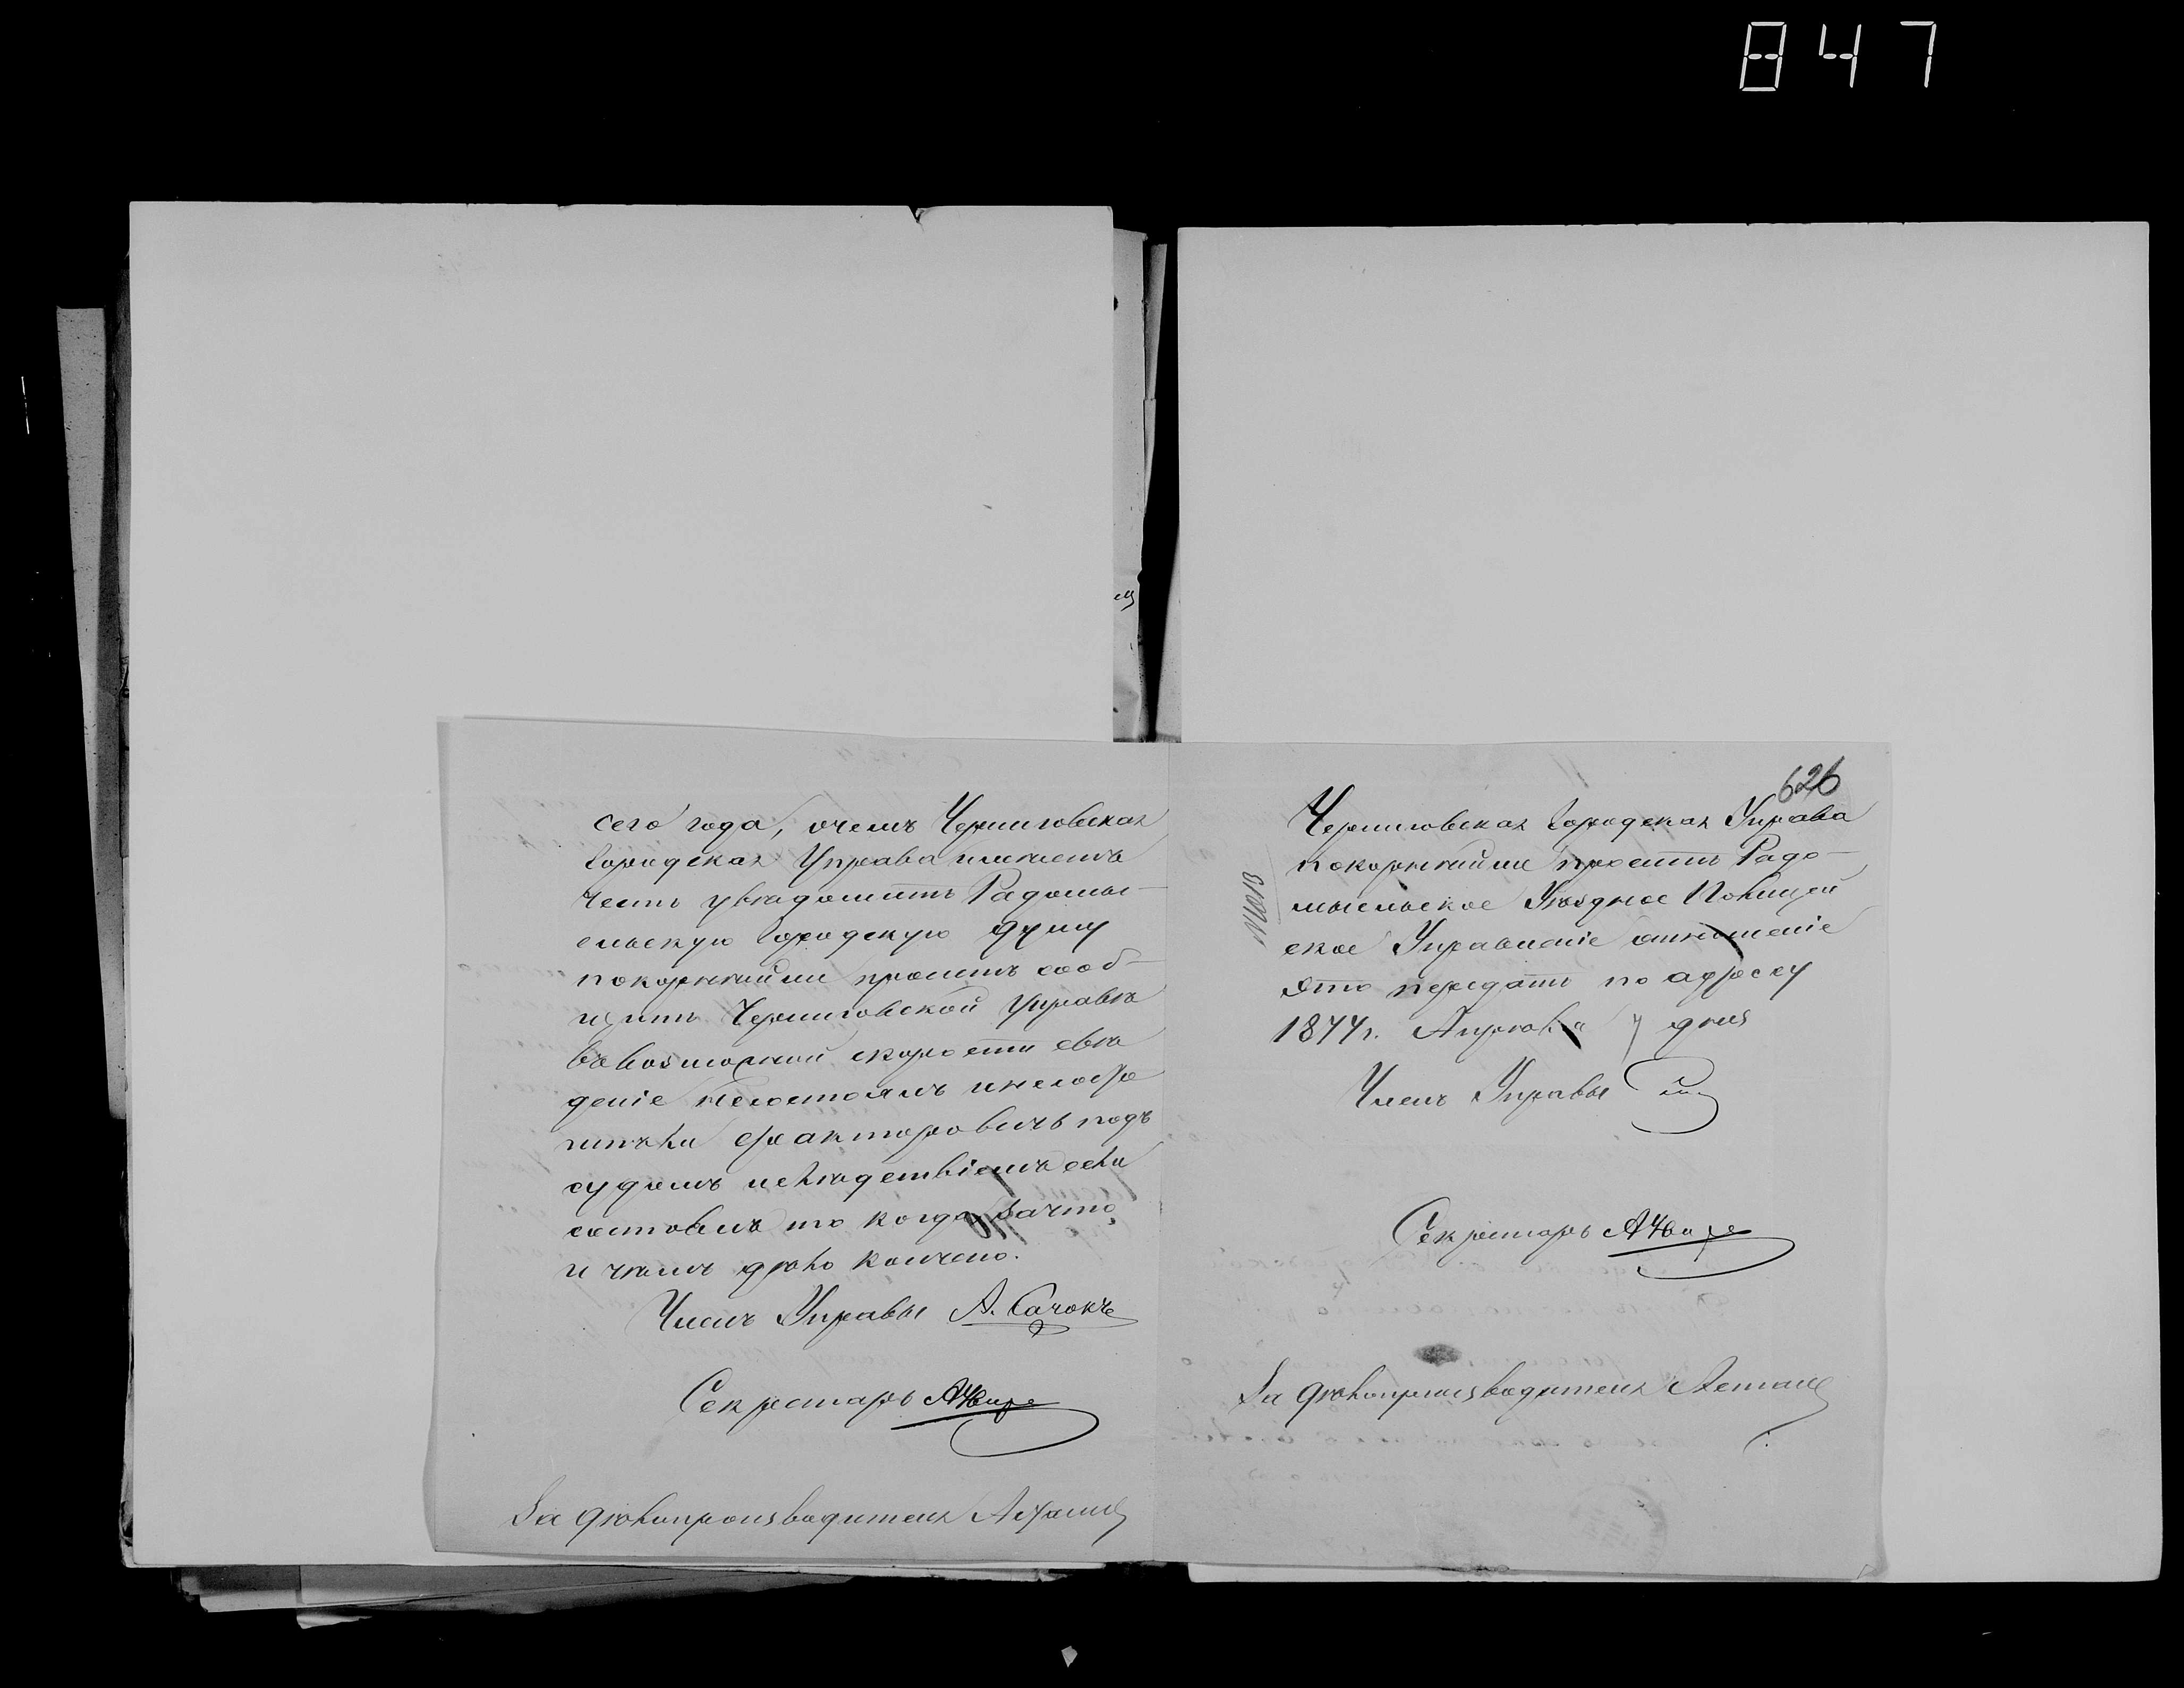 847
сего года, очемъ Черниговская
Городская Управа имѣетъ
честь увѣдомить Радомы-
сльскую Городскую Думу
покорнѣйше проситъ сооб-
щить Черниговской Управѣ
въ возможной скорости свѣ
деніе несостоялъ инелофе
подъ
судомъ ислѣдствіемъ если
состоялъ то когда, зачто,
и чѣмъ дѣло кончено.
Членъ Управы А. Сачокъ
Секретарь
За дѣлопроизводителя
626
Черниговская Городская Управа
покорнѣйше проситъ Радо-
мысльское Уѣздное Полицей
ское Управленіе отношеніе
это передать по адресу
1877г. Апрѣля 7 дня
Членъ Управы
Секретарь
За дѣлопроизводителя